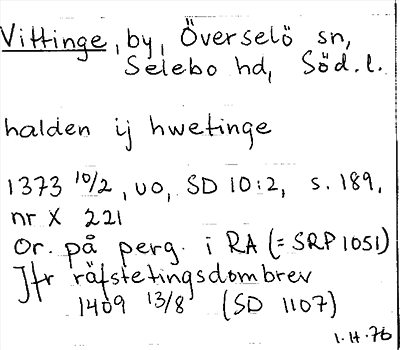 Vittinge, by, Överselö sn,
Selebo hd, Söd. l.
halden ij hwetinge
1373 10/2, uo, SD 10:2, s. 189,
nr X 221
Or. på perg. i RA (= SRP 1051)
Jfr räfstetingsdombrev
1409 13/8 (SD 1107)
1.H.76